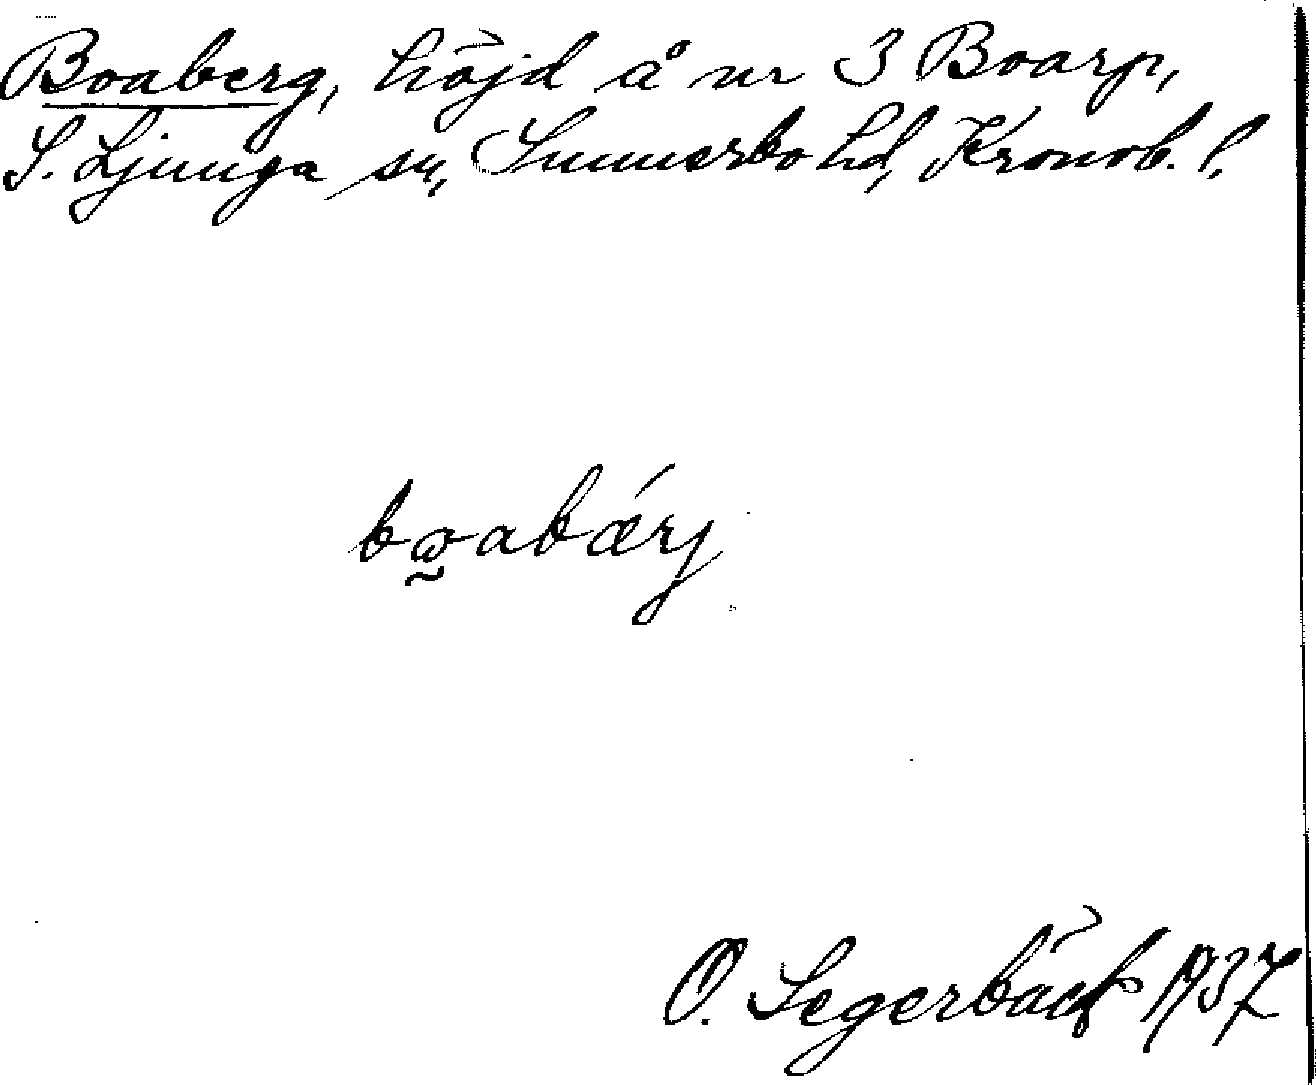 Boaberg, höjd å nr 3 Boarp,
S. Ljunga sn, Sunnerbo hd, Kronob. l.
bωabærj
O. Segerbäck 1937